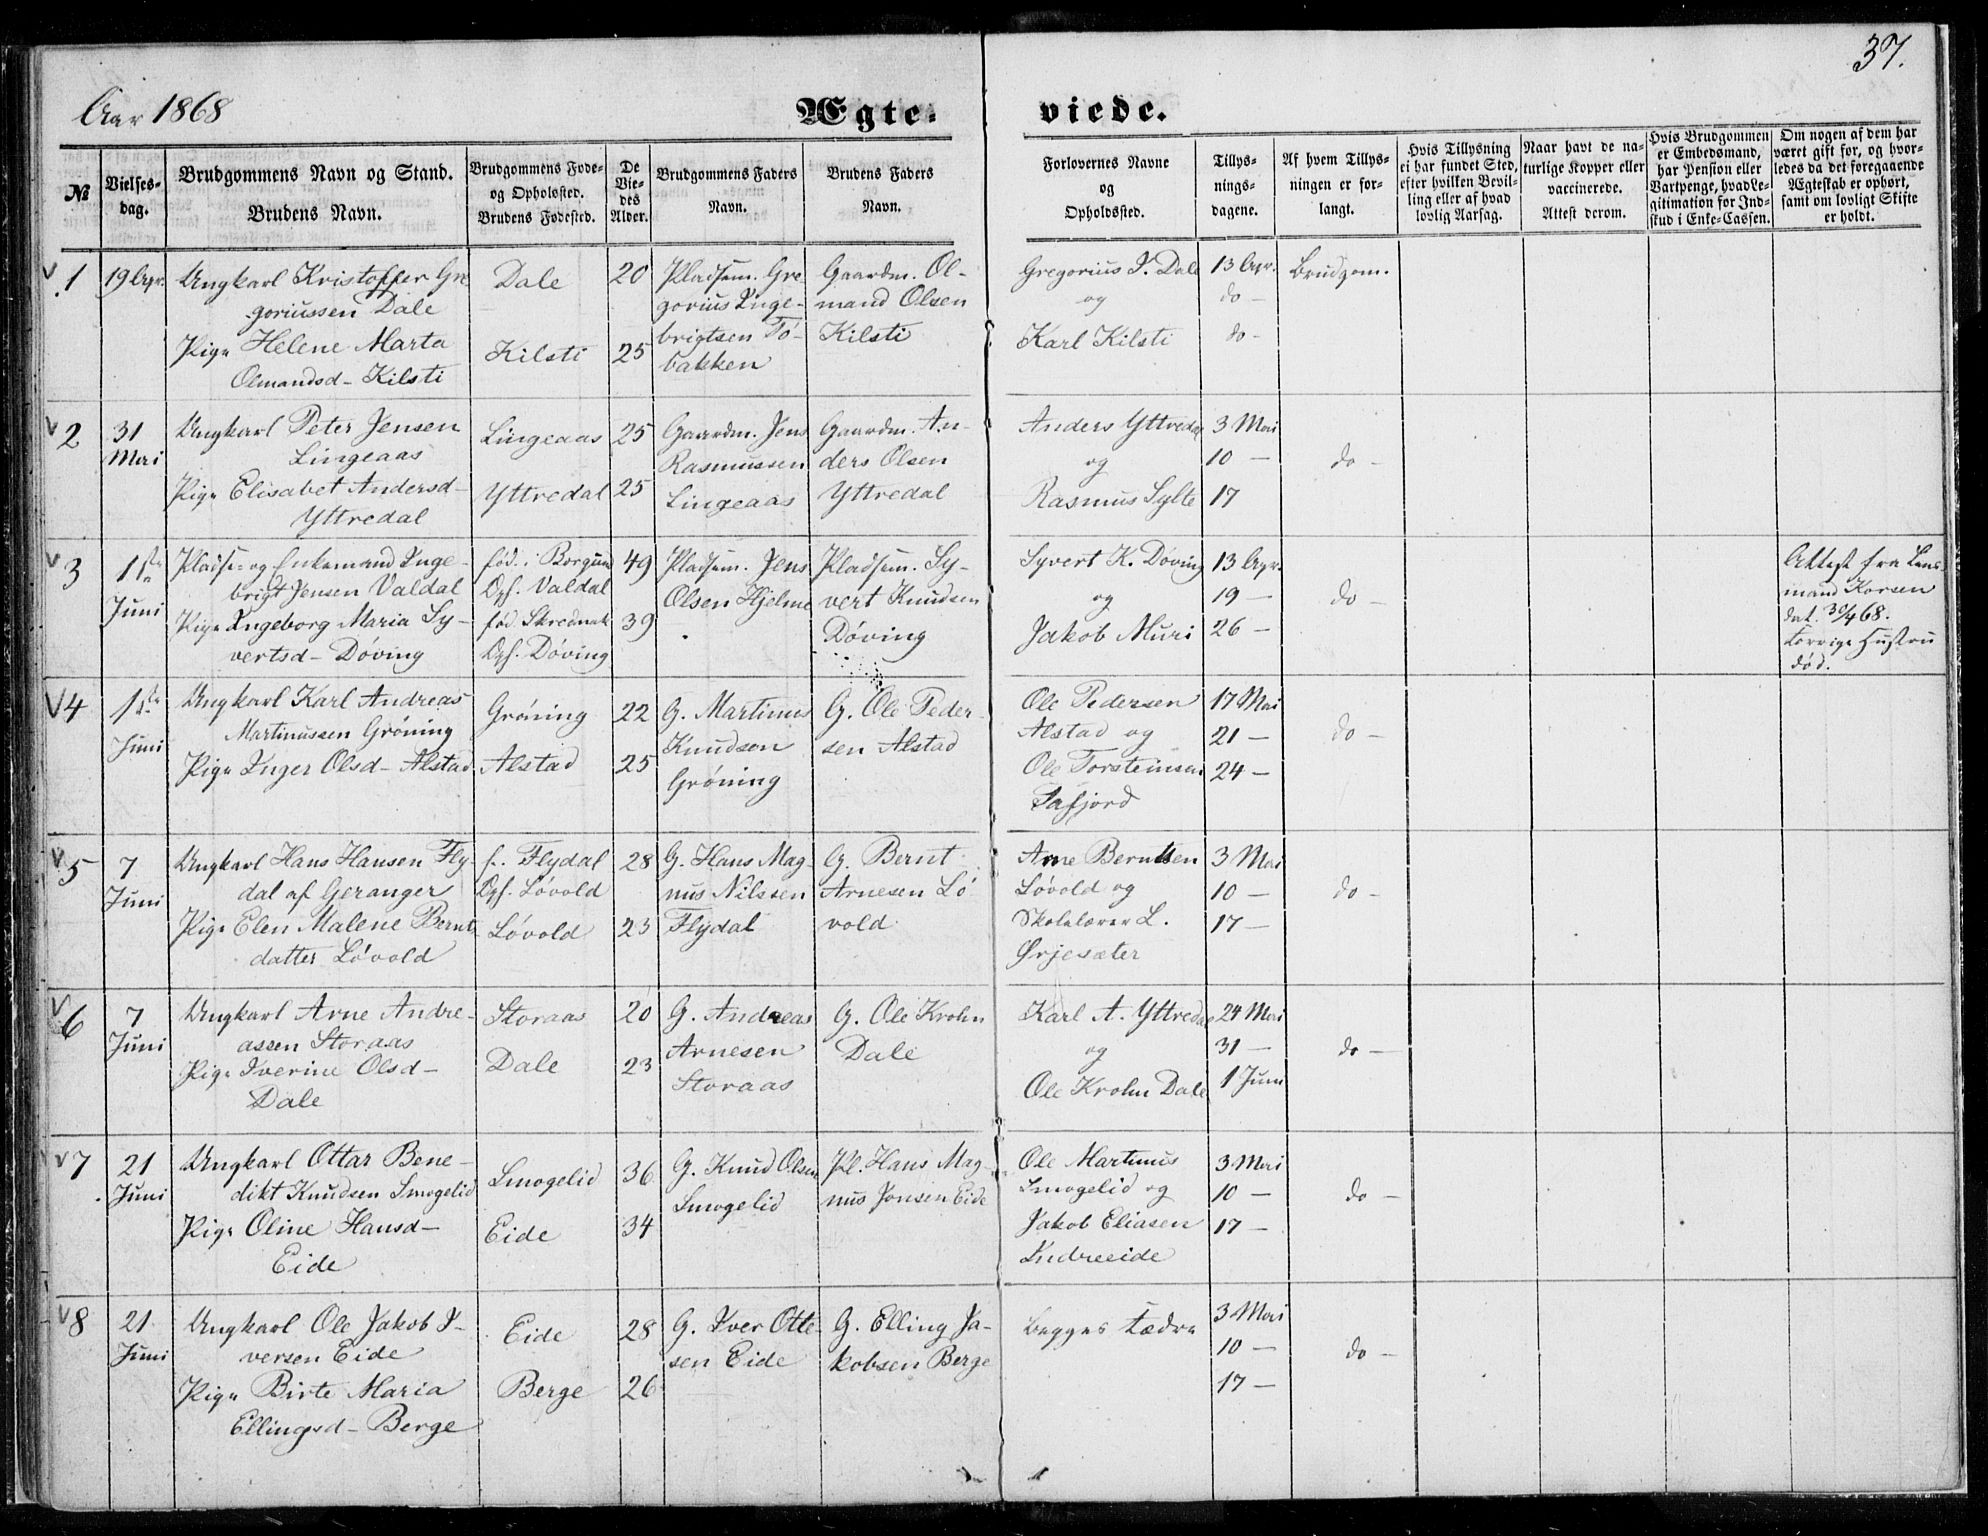 37.
Aar 1868
Ægte- viede.
№
Vielses-
dag.
Brudgommens Navn og Stand.
Brudens Navn.
Brudgommens Føde-
og Opholdssted.
Brudens Fødested.
De
Vie-
des
Alder.
Brudgommens Faders
Navn.
Brudens Faders
Navn.
Forlovernes Navne
og
Opholdssted.
Tillys-
nings-
dagene.
Af hvem Tillys-
ningen er for-
langt.
Hvis Tillysning
ei har fundet Sted,
efter hvilken Bevil-
ling eller af hvad
lovlig Aarsag.
Naar havt de na-
turlige Kopper eller
vaccinerede.
Attest derom.
Hvis Brudgommen
er Embedsmand,
har Pension eller
Vartpenge, hvad Le-
gitimation for Ind-
skud i Enke-Cassen.
Om nogen af dem har
været gift før, og hvor-
ledes da det foregaaende
Ægteskab er ophørt,
samt om lovligt Skifte
er holdt.
1
19 Apr.
Ungkarl Kristoffer Gre
goriussen Dale
Pige Helene Marta
Olmandsd- Kilsti
Dale
Kilsti
20
25
Pladsm. Gre
gorius Inge-
brigtsen Tø-
bakken
Gaardm. Ol-
mand Olsen
Kilsti
Gregorius I. Dale
og
Karl Kilsti
13 Apr.
do -
do -
Brudgom.
2
31
Mai
Ungkarl Peter Jensen
Lingeaas
Pige Elisabet Andersd-
Yttredal
Lingeaas
Yttredal
25
25
Gaardm. Jens
Rasmussen
Lingeaas
Gaardm. An-
ders Olsen
Yttredal
Anders Yttredal
og
Rasmus Sylte
3 Mai
10 -
17
do -
3
1ste
Juni
Plads- og Enkemand Inge-
brigt Jensen Valdal
Pige Ingeborg Maria Sy-
vertsd- Døving
fød. i Borgund
Opf. Valdal
fød. Skrednak
Opf. Døving
49
39
Pladsm. Jens
Olsen Hjelme
Pladsm. Sy-
vert Knudsen
Døving
Syvert K. Døving
og
Jakob Muri
13 Apr.
19 -
26 -
do -
Attest fra Lens
mand Korsen
dat. 30/4 68.
Forrige Hustru
død.
4
1ste
Juni
Ungkarl Karl Andreas
Martinussen Grøning
Pige Inger Olsd- Alstad
Grøning
Alstad
22
25
G. Martinus
Knudson
Grøning
G. Ole Peder-
sen Alstad
Ole Pedersen
Alstad og
Ole Torsteinsen
Tafjord
17 Mai
21 -
24 -
do -
5
7
Juni
Ungkarl Hans Hansen Fly-
dal af Geranger
Pige Elen Malene Bernt
datter Løvold
f. Flydal
Opf. Løvold
Løvold
28
23
G. Hans Mag-
nus Nilssen
Flydal
G. Bernt
Arnesen Lø
vold
Arne Berntsen
Løvold og
Skolelærer L.
Ørjesæter
3 Mai
10 -
17 -
do -
6
7
Juni
Ungkarl Arne Andre-
assen Storaas
Pige Iverine Olsd-
Dale
Storaas
Dale
20
23
G. Andreas
Arnesen
Storaas
G. Ole Krohn
Dale
Karl A. Yttredal
og
Ole Krohn Dale
24 Mai
31 -
1 Juni
do -
7
21
Juni
Ungkarl Ottar Bene-
dikt Knudsen Smogelid
Pige Oline Hansd-
Eide
Smogelid
Eide
36
34
G. Knud Olsen
Smogelid
Pl. Hans Mag-
nus Jonsen Eide
Ole Martinus
Smogelid og
Jakob Eliasen
Indreeide
3 Mai
10 -
17 -
do -
8
21
Juni
Ungkarl Ole Jakob I-
versen Eide
Pige Birte Maria
Ellingsd- Berge
Eide
Berge
28
26
G. Iver Otte-
sen Eide
G. Elling Ja-
kobsen Berge
Begges Fædre
3 Mai
10 -
17 -
do -